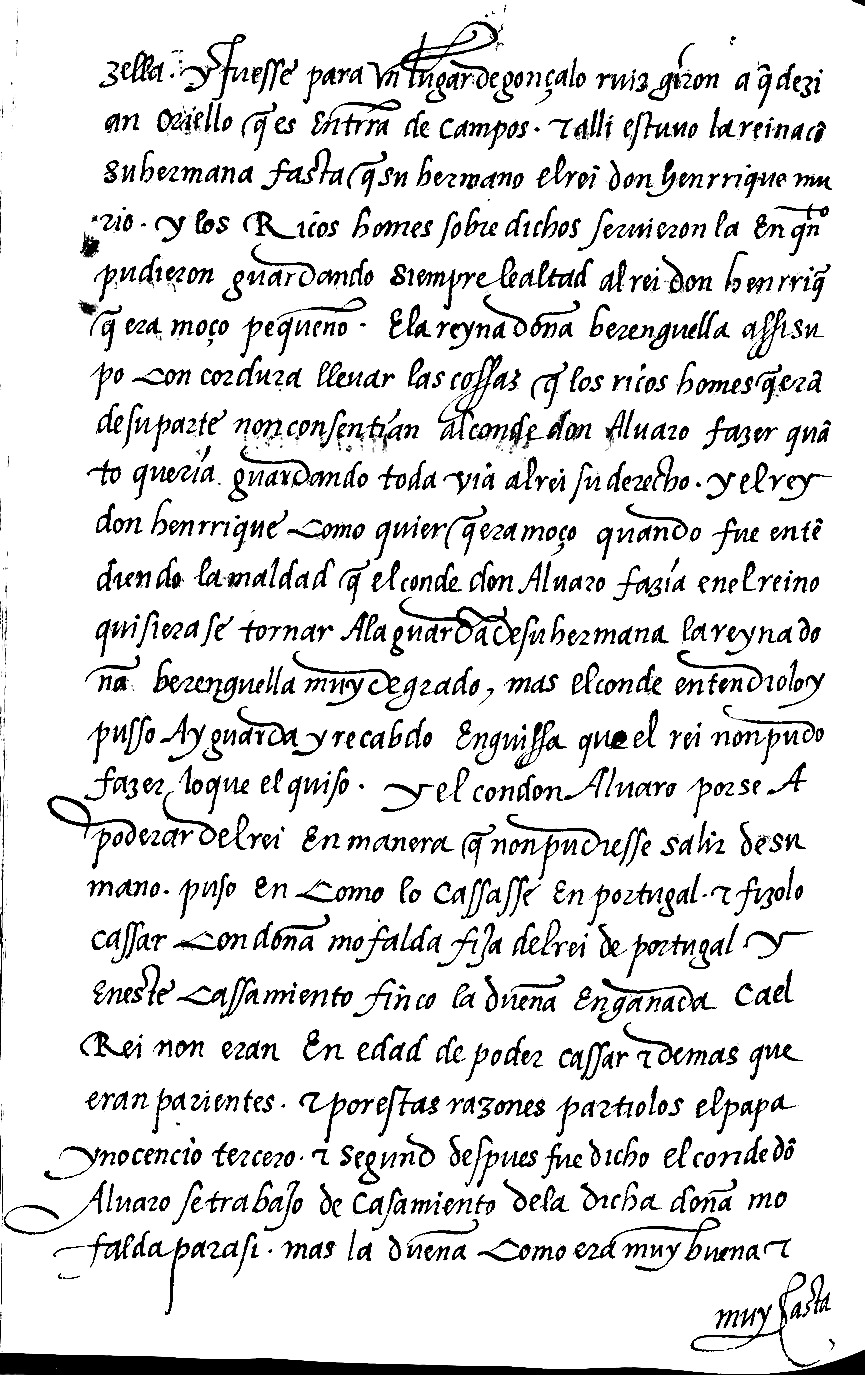 zella. y fuesse para vn lugar de gonçalo ruiz giron a q̃ dezi
an Oziello q̃ es En trr̃a de Campos. τ alli estuuo la reina cõ
su hermana fasta q̃ su hermano el rei don henrrique mu
rio. y los Ricos homes sobre dichos seruieron la En qñto
pudieron guardando siempre lealtad al rei don henrriq̃
q̃ era moço pequeno. E la reyna doña berenguella assi su
po con cordura lleuar las cossas q̃ los ricos homes q̃ erã
de su parte non consentían al conde don Aluaro fazer quã
to quería guardando toda vía al rei su derecho. y el rey
don henrrique como quier q̃ era moço quando fue entẽ
diendo la maldad q̃ el conde don Aluaro fazía en el reino
quisiera se tornar A la guarda de su hermana la reyna do
ña berenguella muy de grado, mas el conde entendiolo y
pusso Ay guarda y recabdo En guissa que el rei non pudo
fazer lo que el quiso. y el con don Aluaro por se A
poderar del rei En manera q̃ non pudiesse salir de su
mano. puso En como lo cassasse En portugal. τ fizolo
cassar con doña mofalda fija del rei de portugal y
En este cassamiento finco la duena Enganada Ca el
Rei non eran En edad de poder cassar τ demas que
eran parientes. τ por estas razones partiolos el papa
ynocencio tercero. τ segund despues fue dicho el conde dõ
Aluaro se trabajo de casamiento de la dicha doña mo
falda para si. mas la duena como era muy buena τ
muy casta